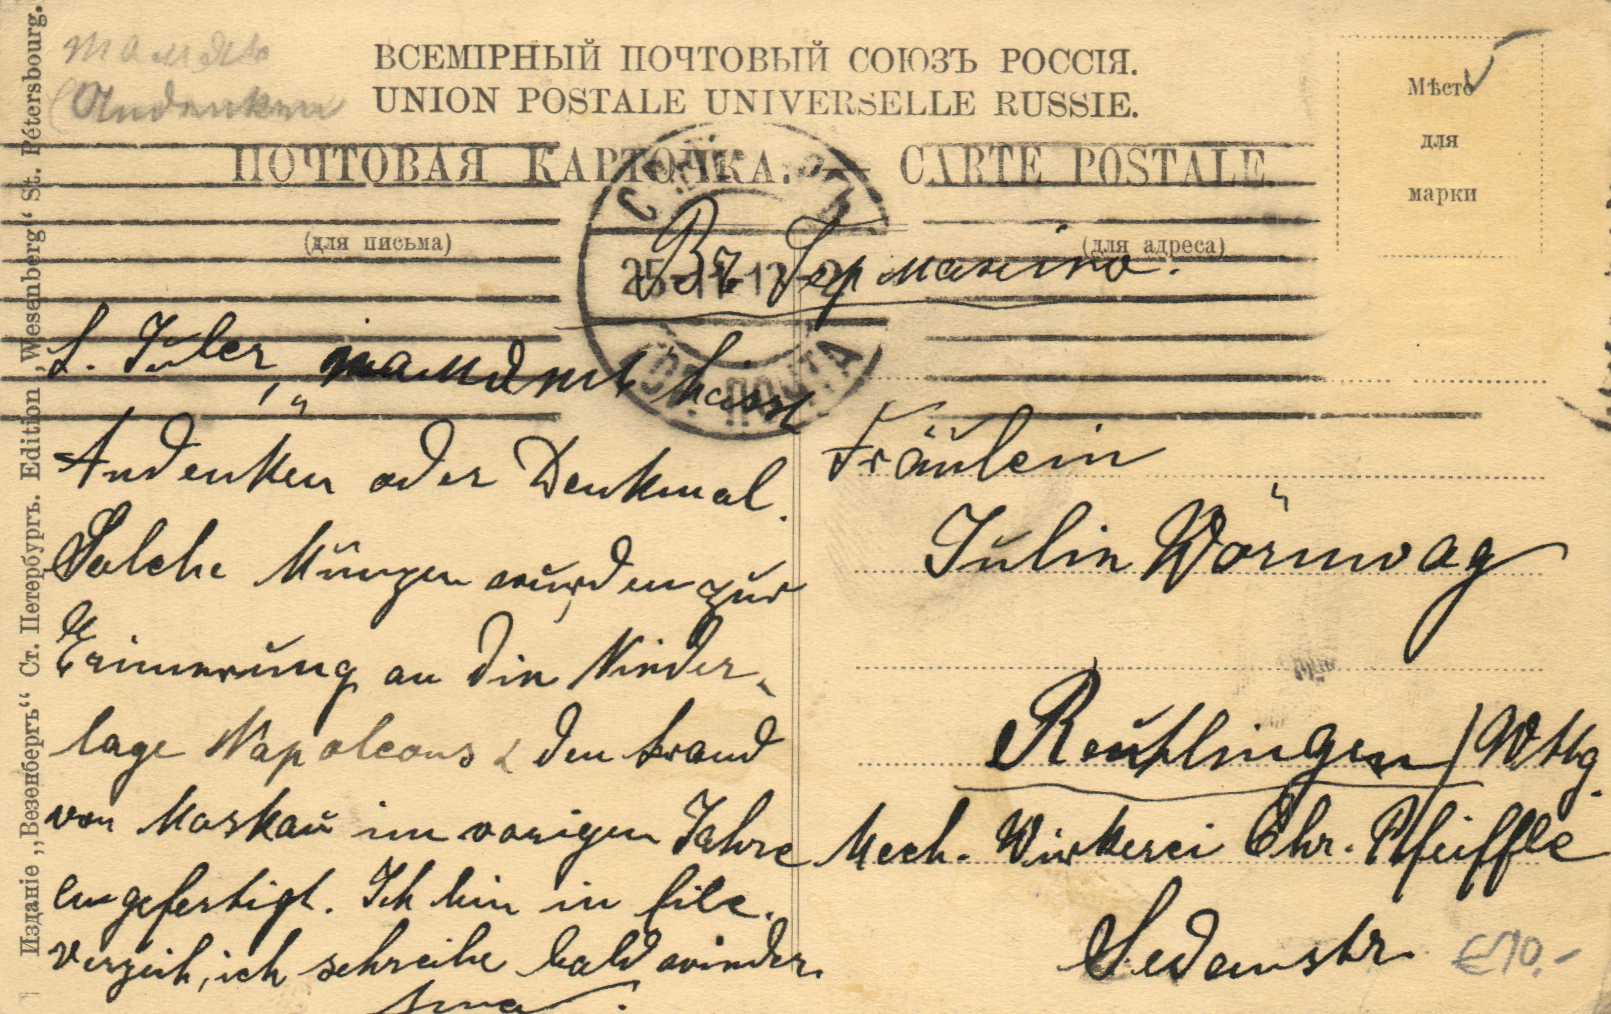 память
(Andenken
ВСЕМІРНЫЙ ПОЧТОВЫЙ СОЮЗЪ РОССІЯ.
UNION POSTALE UNIVERSELLE RUSSIE.
ПОЧТОВАЯ КАРТОЧКА. — CARTE POSTALE.
Мѣсто
для
марки
(для письма)
(для адреса)
25-11-12-2
ПОЧТА
Въ Германію.
L. Juler, "память heisst
Andenken oder Denkmal.
Solche Münzen würden zur
Erinnerung an die Nieder-
lage Napoleons & den Brand
von Moskau im vorigen Jahre
angefertigt. Ich bin in Eile.
Verzeih, ich schreibe bald wieder.
Fräulein
Julie Wörnwag
Reutlingen / Wttbg.
Mech. Wirkerei Chr. Pfeiffle
Sedanstr.
€10.-
Изданіе „Везенбергъ“ Ст. Петербургъ. Edition „Wesenberg“ St. Pétersbourg.